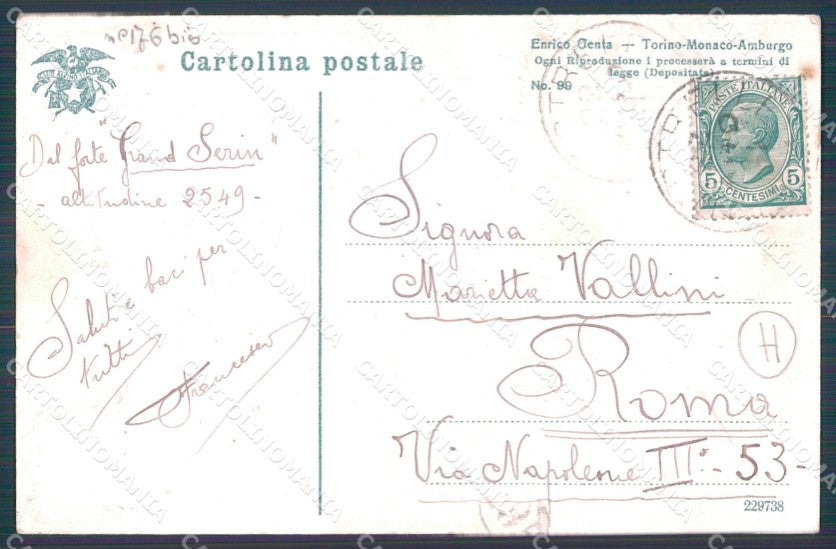 nº 176 bis
Cartolina postale
Enrico Genta — Torino-Monaco-Amburgo
Ogni Riproduzione i processerà a termini di
legge (Depositata)
No. 99
POSTE ITALIANE
5 5
CENTESIMI
Dal forte "Grand Serin"
- altitudine 2549 -
Saluti e baci per
tutti
Francesco
Signora
Marietta Vallini
Roma
Via Napoleone III:- 53-
H
229738
CARTOLINOMANIA